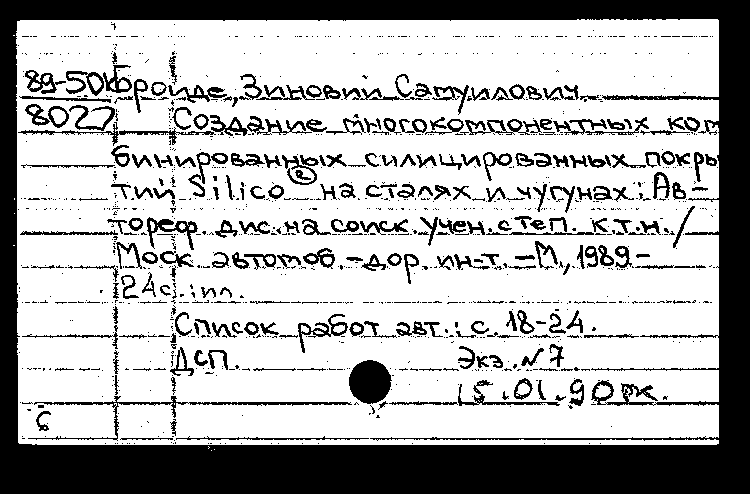 89-50к Фройде, Зиновий Самуилович.
8027 Создание многокомпонентных ком
бинированных силицированных покры
тий Silico ® на сталях и чугунах: Ав-
тореф. дис. на соиск. учен. степ. к.т.н. /
Моск. автомоб.-дор. ин-т. – М., 1989 –
24с.: ил.
Список работ авт.: с. 18-24.
ДСП. Экз. N 7.
15.01.90